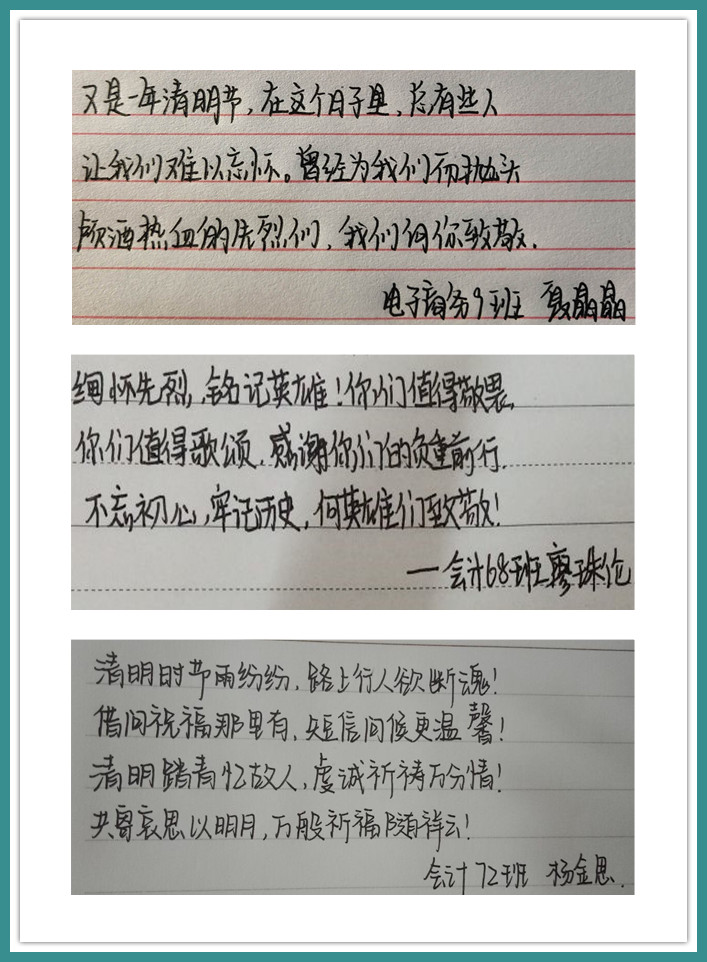 又是一年清明节,在这个日子里,总有些人
让我们难以忘怀。曾经为我们而抛头
颅洒热血的先烈们,我们向你致敬.
电子商务9班 聂晶晶
缅怀先烈,铭记英雄!你们值得敬畏,
你们值得歌颂,感谢你们的负重前行.
不忘初心,牢记历史,向英雄们致敬!
—会计68班廖珠伦
清明时节雨纷纷,路上行人欲断魂!
借问祝福那里有,短信问候更温馨!
清明踏青忆故人,虔诚祈祷万分情!
共寄哀思以明月,万般祈福随祥云!
会计72班 杨金思.